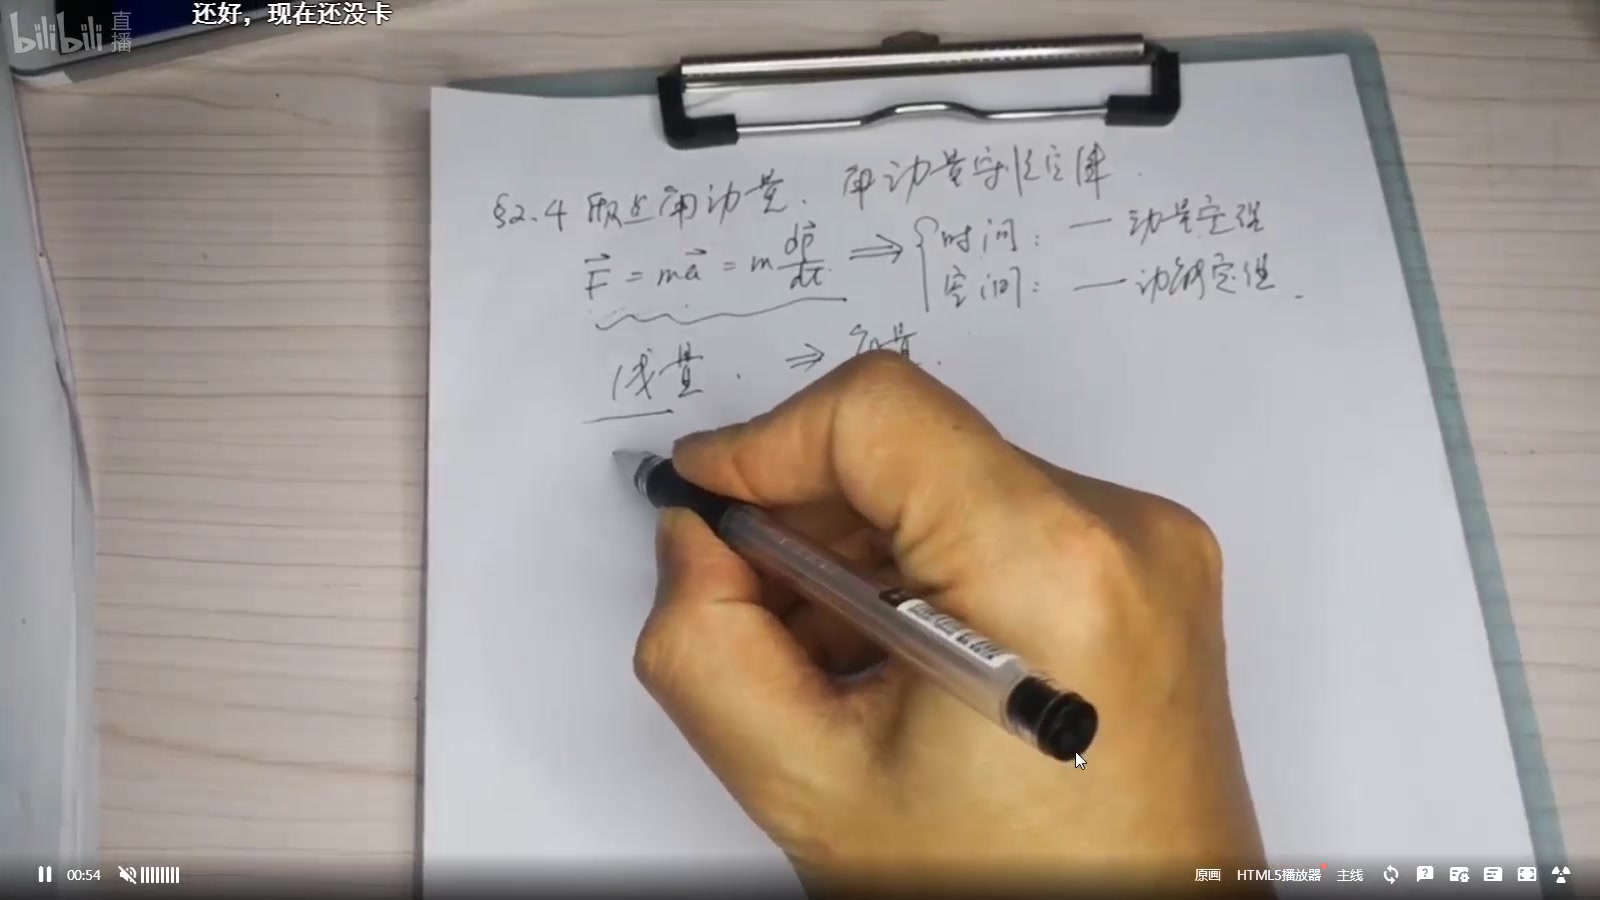 还好，现在还没卡
bilibili 直播
§2.4 质点角动量、角动量守恒定律.
F⃗ = ma⃗ = m dp⃗/dt ⇒ { 时间：— 动量定理
空间：— 动能定理.
线量. ⇒ 角量.
00:54
原画 HTML5播放器 主线